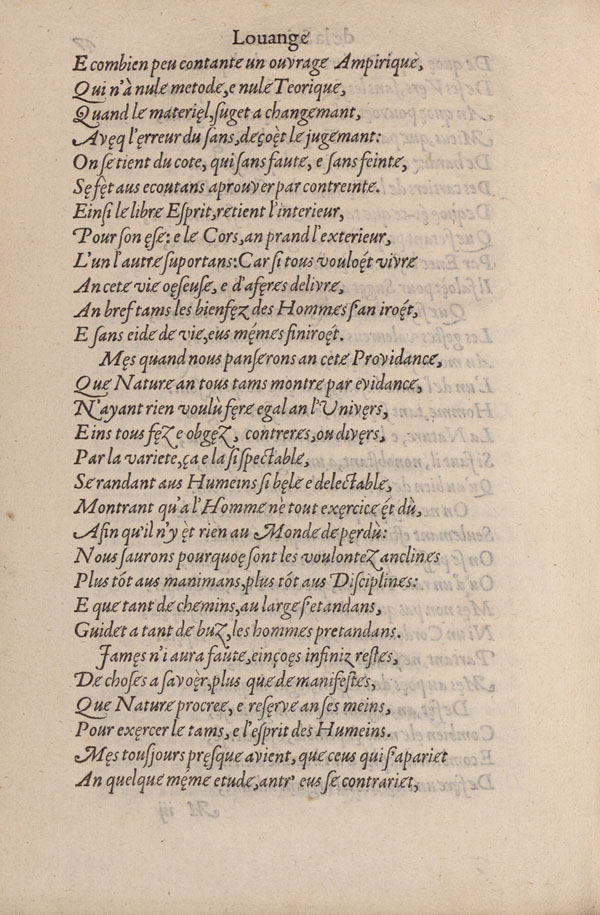 Louange
E combien peu contante un ouvrage Ampirique,
Qui n'à nule metode, e nule Teorique,
Quand le materięl, suget a changemant,
Avęq l'ęrreur du sans, deçoèt le jugemant:
On se tient du cote, qui sans faute, e sans feinte,
Sę fęt aus ecoutans aprouver par contreinte.
Einsi le libre Esprit, retient l'interieur,
Pour son ęse: e le Cors, an prand l'exterieur,
L'un l'autre suportans: Car si tous vouloęt vivre
An cete vie oęseuse, e d'aferes delivre,
An bref tams les bienfęz des Hommes s'an iroęt,
E sans eide de vie, eus męmes finiroęt.
Męs quand nous panserons an cete Providance,
Que Nature an tous tams montre par evidance,
N'ayant rien voulù fęre egal an l'Univers,
Eins tous fęz e obgęz, contreres, ou divęrs,
Par la variete, ça e la si spectable,
Se randant aus Humeins si bęle e delectable,
Montrant qu'a l'Homme ne tout exęrcice ęt dù,
Afin qu'il n'y èt rien au Monde de pęrdù:
Nous saurons pourquoę sont les voulontez anclines
Plus tót aus manimans, plus tót aus Disciplines:
E que tant de chemins, au large s'etandans,
Guidet a tant de buz, les hommes pretandans.
Jamęs n'i aura faute, einçoęs infiniz restes,
De choses a savoęr, plus que de manifestes,
Que Nature procree, e resęrve an ses meins,
Pour exęrcer le tams, e l'esprit des Humeins.
Męs tousjours pręsque avient, que ceus qui s'apariet
An quelque męme etude, antr' eus se contrariet,